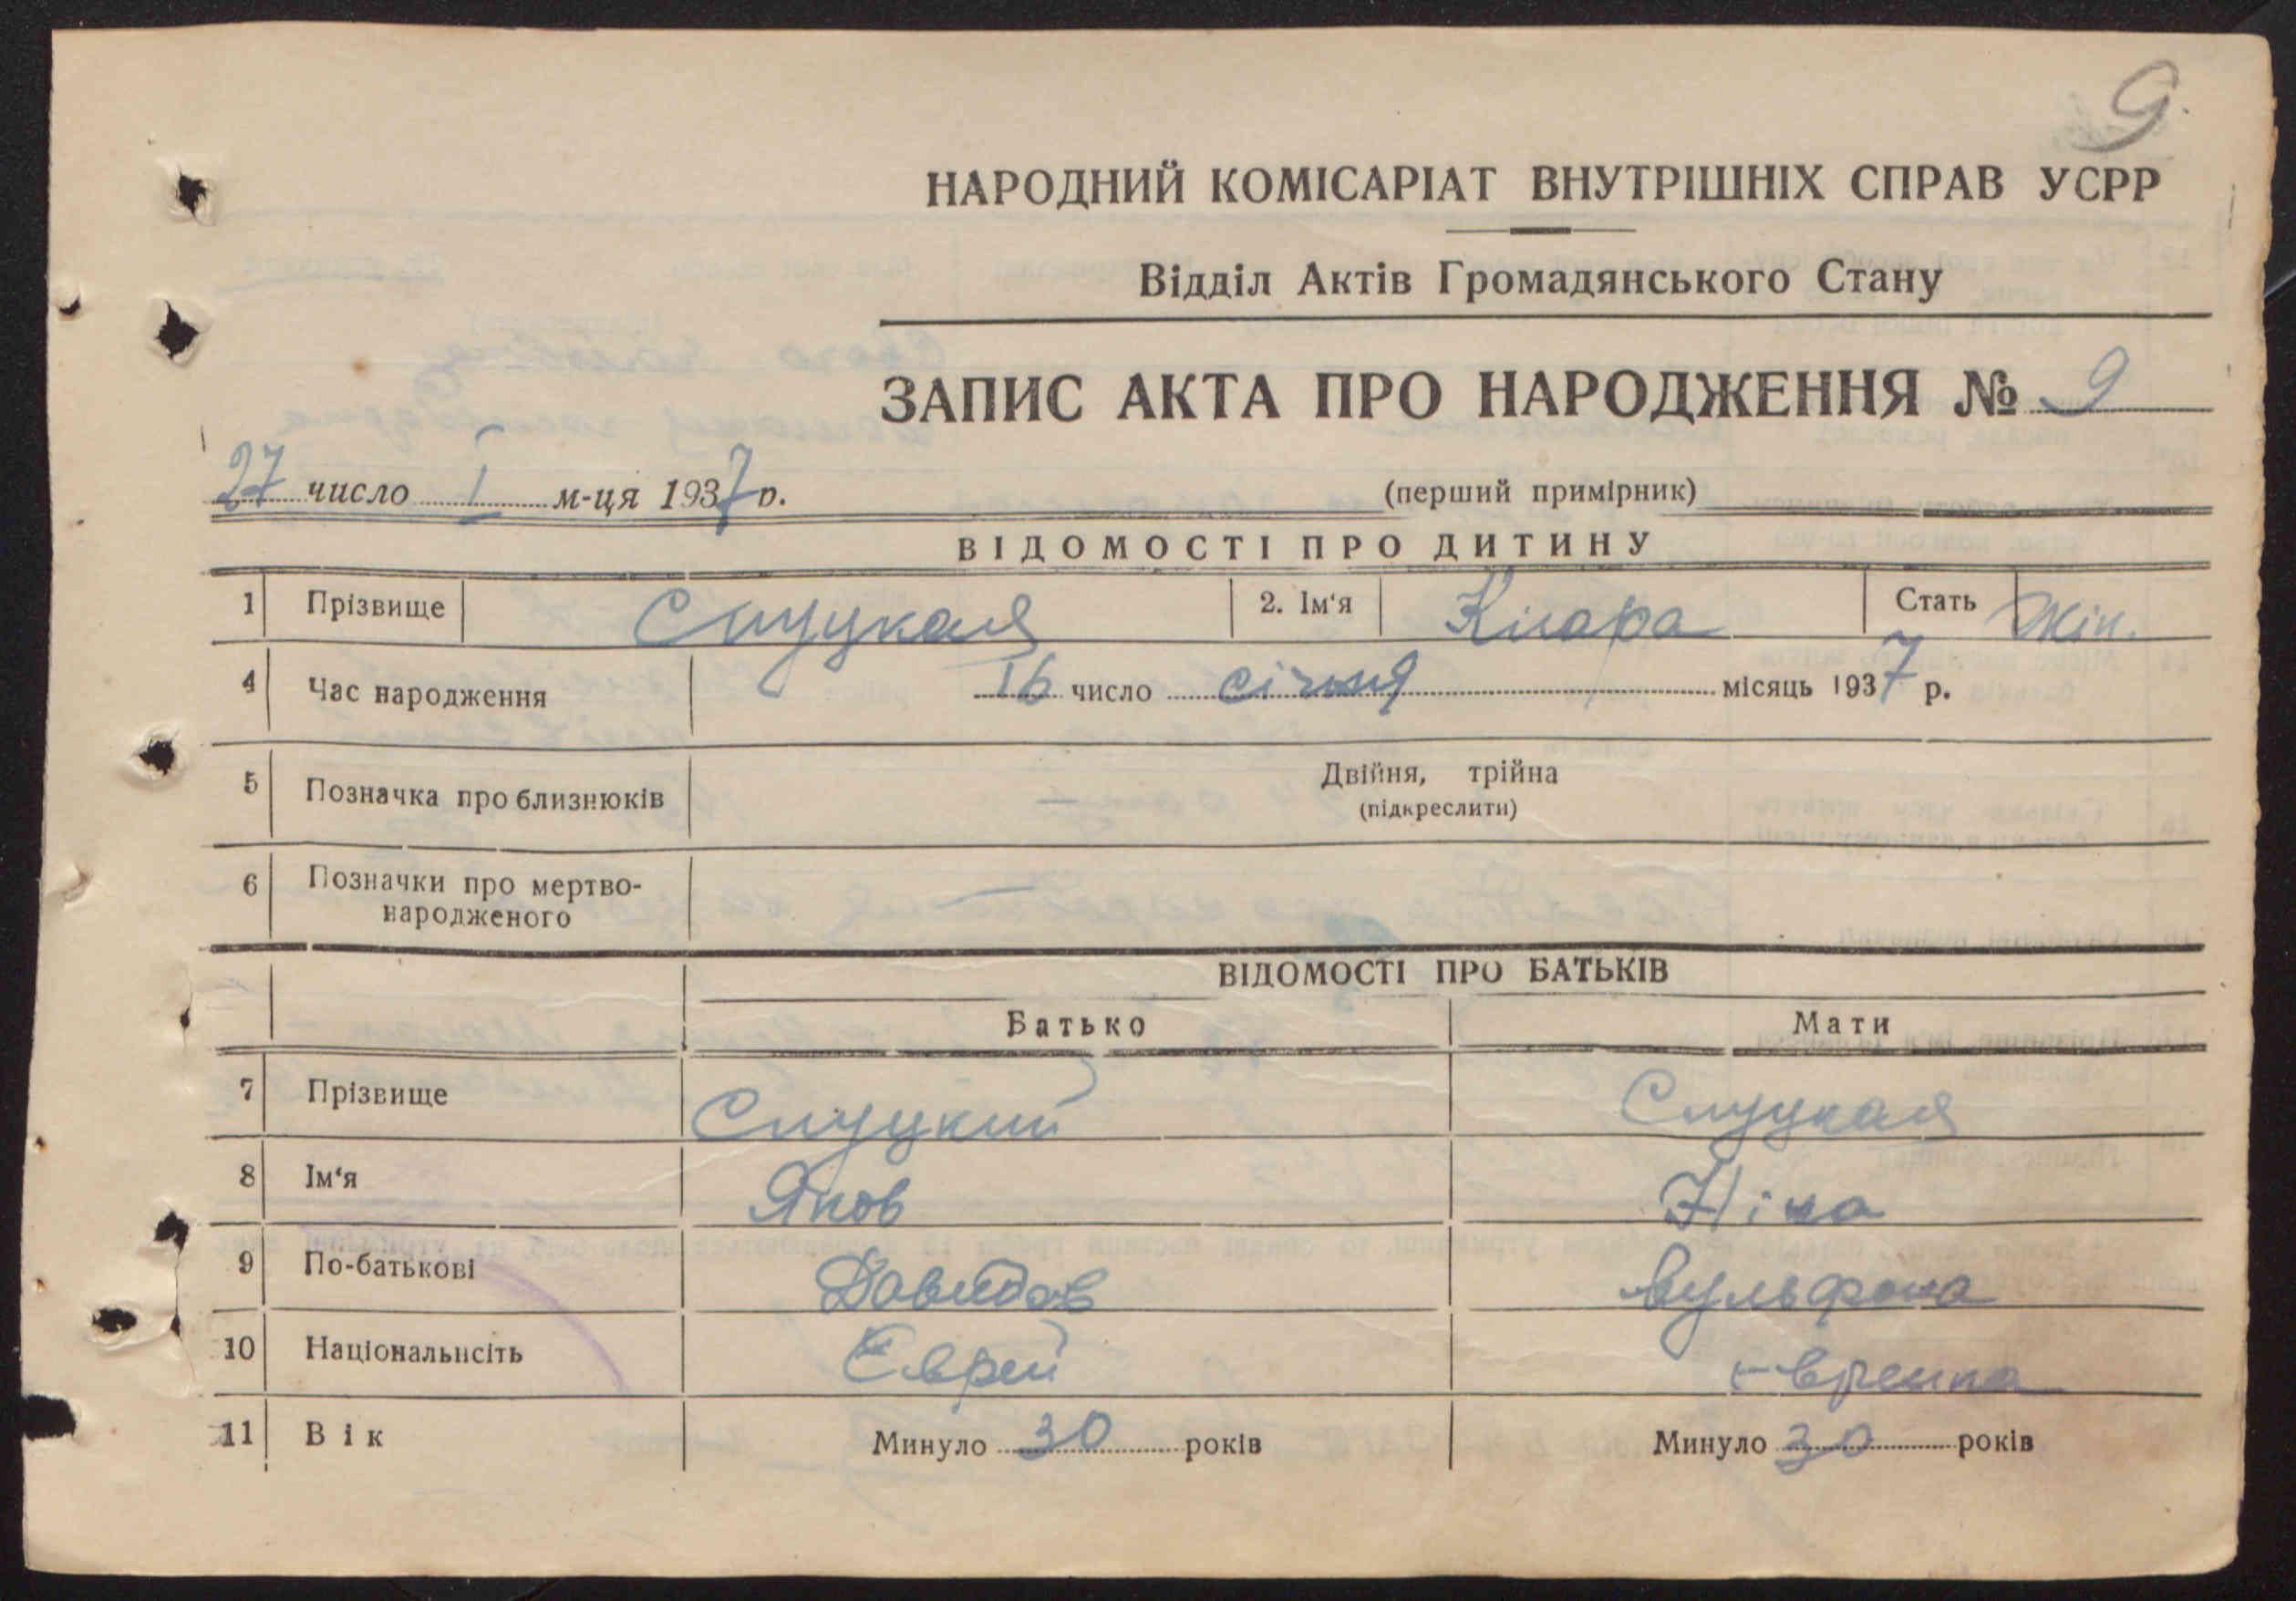 9.
НАРОДНИЙ КОМІСАРІАТ ВНУТРІШНІХ СПРАВ УСРР
Відділ Актів Громадянського Стану
ЗАПИС АКТА ПРО НАРОДЖЕННЯ № 9
27 число I м-ця 1937 р. (перший примірник)
ВІДОМОСТІ ПРО ДИТИНУ
1 Прізвище Слуцкая 2. Ім'я Клара Стать Жін.
4 Час народження 16 число січня місяць 1937 р.
5 Позначка про близнюків Двійня, трійна
(підкреслити)
6 Позначки про мертво-
народженого
ВІДОМОСТІ ПРО БАТЬКІВ
Батько Мати
7 Прізвище Слуцкий Слуцкая
8 Ім'я Яков Ніна
9 По-батькові Давидов Вульфова
10 Національнсіть Єврей Єврейка
11 Вік Минуло 30 років Минуло 30 років